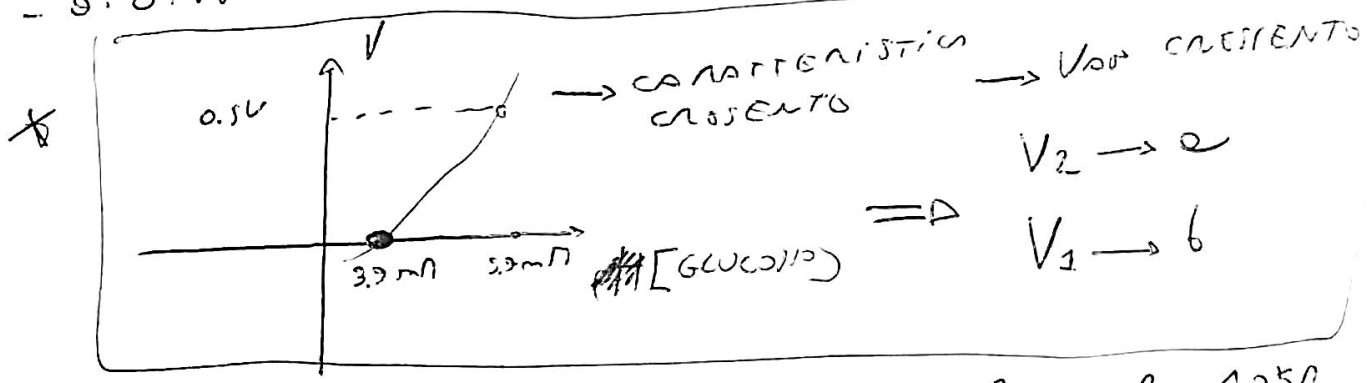 V
0.5V
→ CARATTERISTICA → VAB CRESCENTE
CRESCENTE
V2 → a
⇒
V1 → b
3.9 mM 5.9 mM [GLUCOSIO]